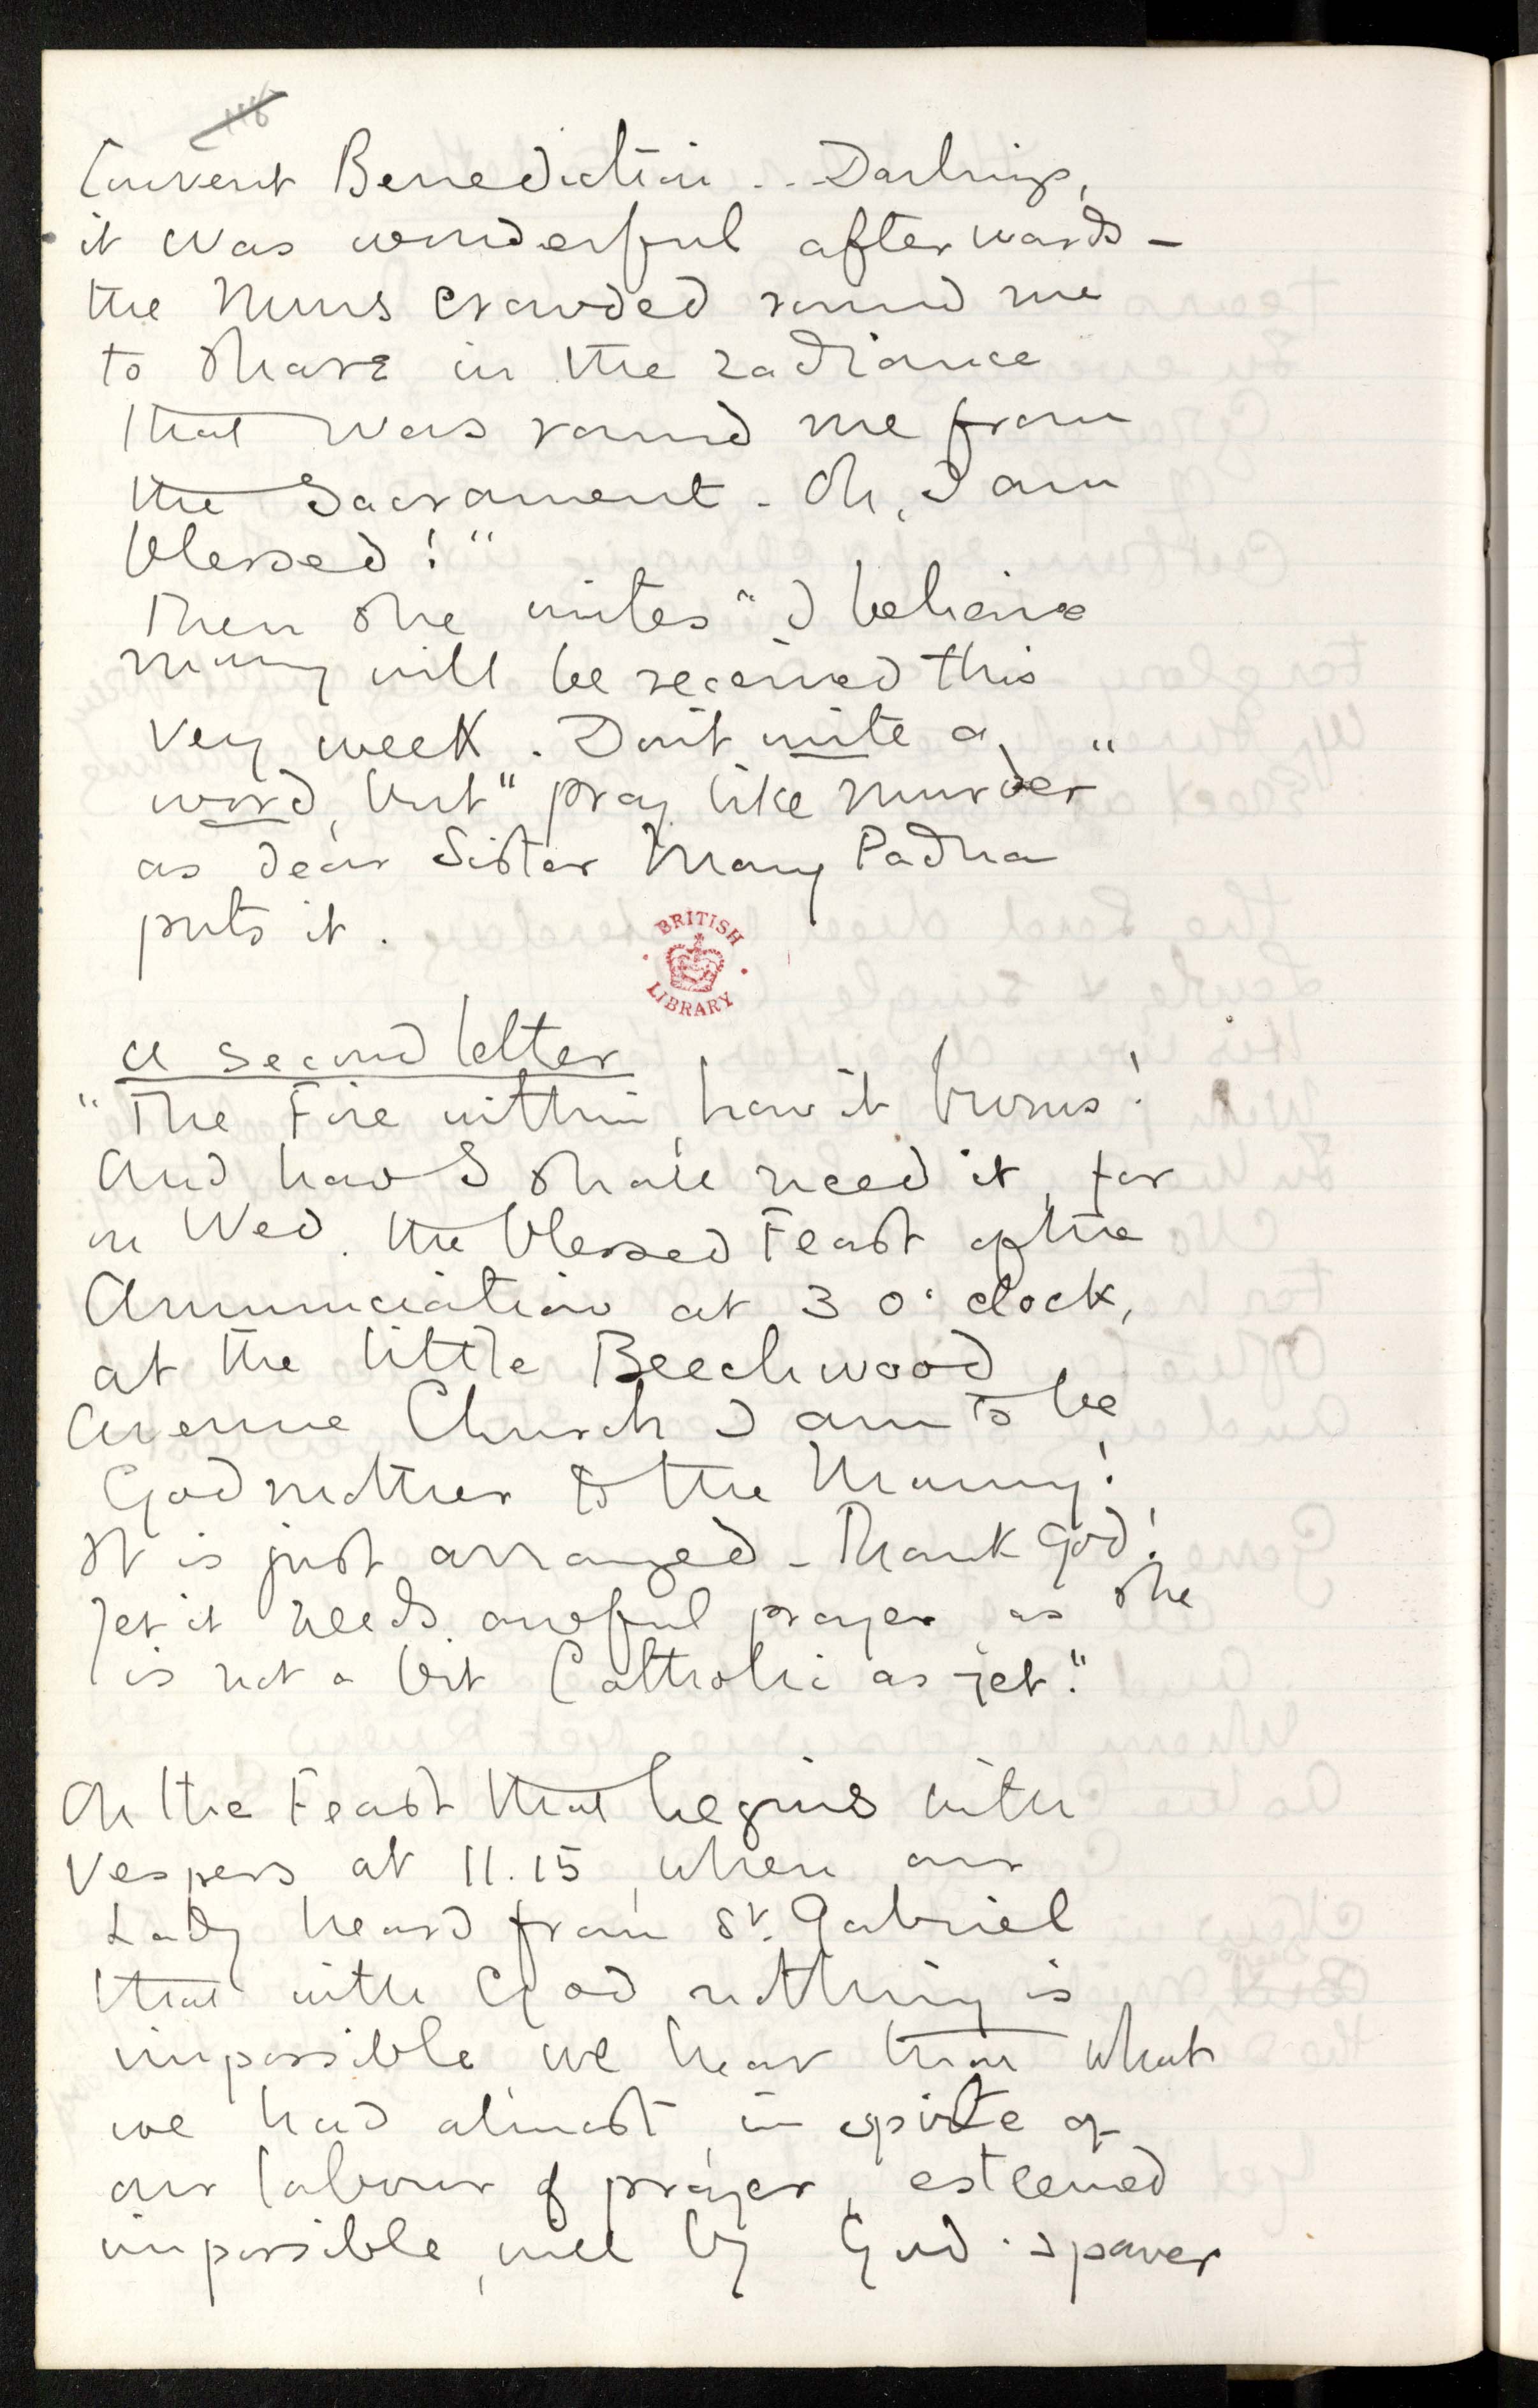 Convent Benediction .. Darlings,
it was wonderful afterwards -
the Nuns crowded round me
to share in the radiance
that was round me from
the Sacrament - Oh, I am
blessed!"
Then she writes "I believe
many will be received this
very week. Don't write a
word, but "pray like murder"
as dear Sister Mary Padua
puts it.
BRITISH
LIBRARY
A second letter
"The Fire within, how it burns!
And how I shall need it, for
on Wed. the blessed Feast of the
Annunciation at 3 o'clock,
at the little Beechwood
Avenue Church I am to be
Godmother to the Mummy!
It is just arranged - Thank God!
Yet it needs awful prayer as she
is not a bit Catholic as yet."
On the Feast that begins with
Vespers at 11.15, when our
Lady heard from St. Gabriel
that with God nothing is
impossible we hear that what
we had almost, in spite of
our labour of prayer, esteemed
impossible, will by God's power